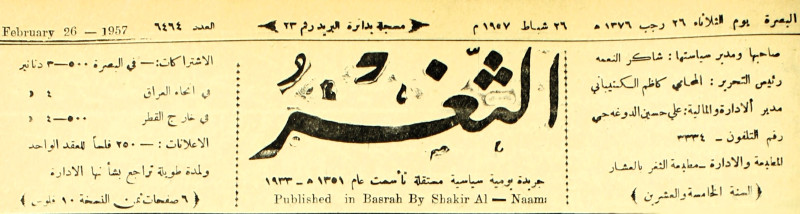 البصرة يوم الثلاثاء ٢٦ رجب ١٣٧٦ ھ ٢٦ شباط ١٩٥٧ م مسجلة بدائرة البريد رقم ٢٣ العدد ٦٤٦٤ February 26 — 1957
صاحبها ومدير سياستها : شاكر النعمه
رئيس التحرير : المحامي كاظم الكنتيباني
مدير الأدارة والمالية : علي حسين الدوغه جي
رقم التلفون - ٣٣٣٤
المطبعة والادارة - مطبعة الثغر بالعشار
( السنة الخامسة والعشرين )
الثغر
جريدة يومية سياسية مستقلة تأسست عام ١٣٥١ ھ - ١٩٣٣
Published in Basrah By Shakir Al — Naama
الاشتراكات :— في البصرة ٥٠٠—٣ دنانير
في انحاء العراق ٤ »
في خارج القطر ٥٠٠—٤ »
الاعلانات : — ٢٥٠ فلساً للعقد الواحد
ولمدة طويلة تراجع بشأنها الادارة
( ٦ صفحات ثمن النسخة ١٠ فلوس )